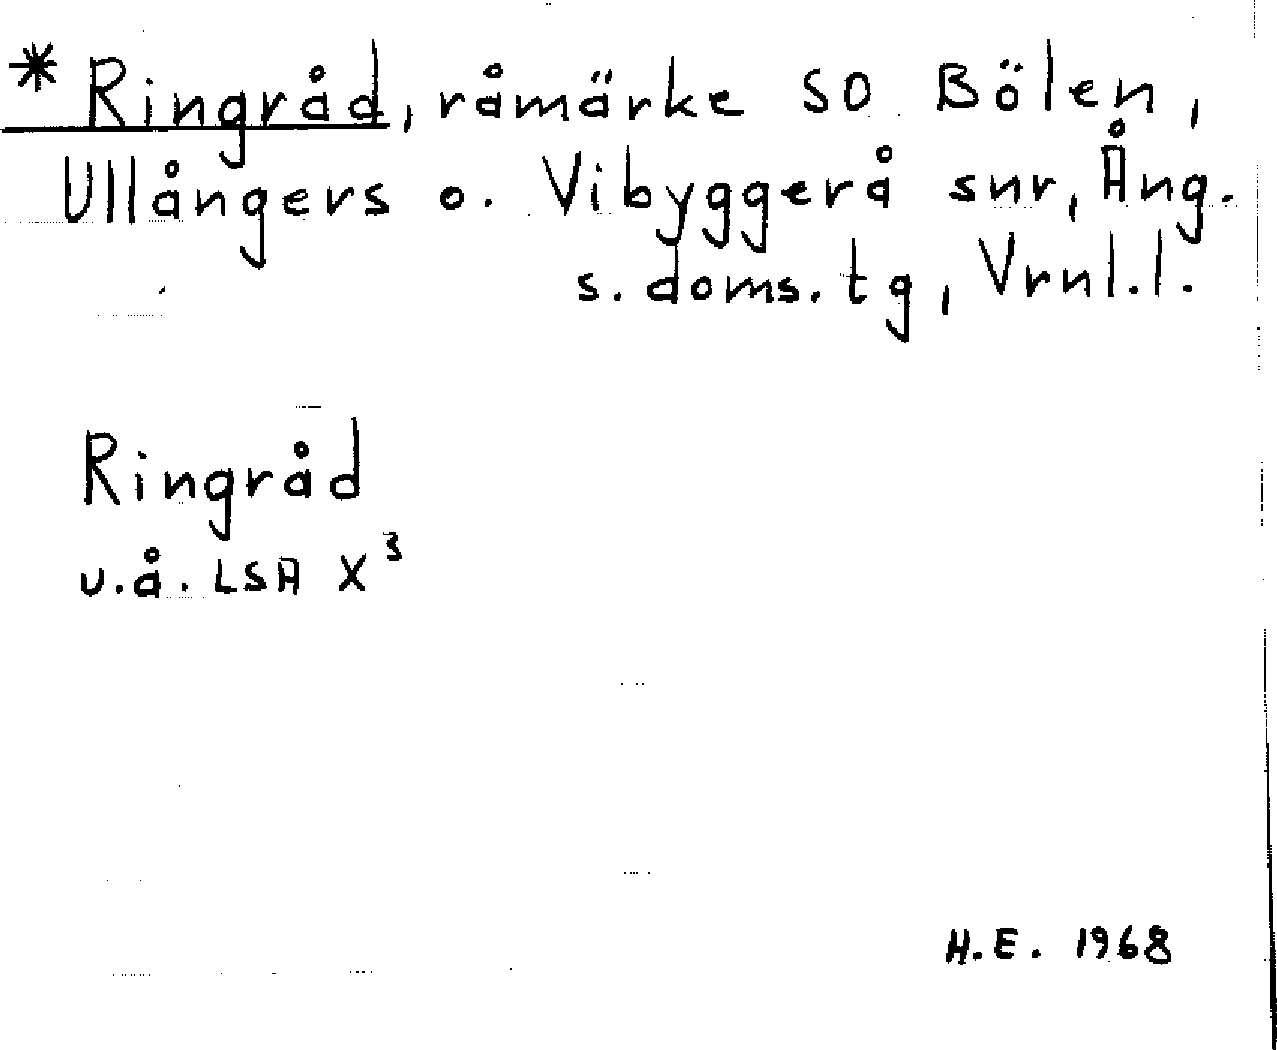 * Ringråd, råmärke SO Bölen,
Ullångers o. Vibyggerå snr, Ång.
s. doms. tg, Vrnl. l.
Ringråd
u.å. LSA X³
H.E. 1968